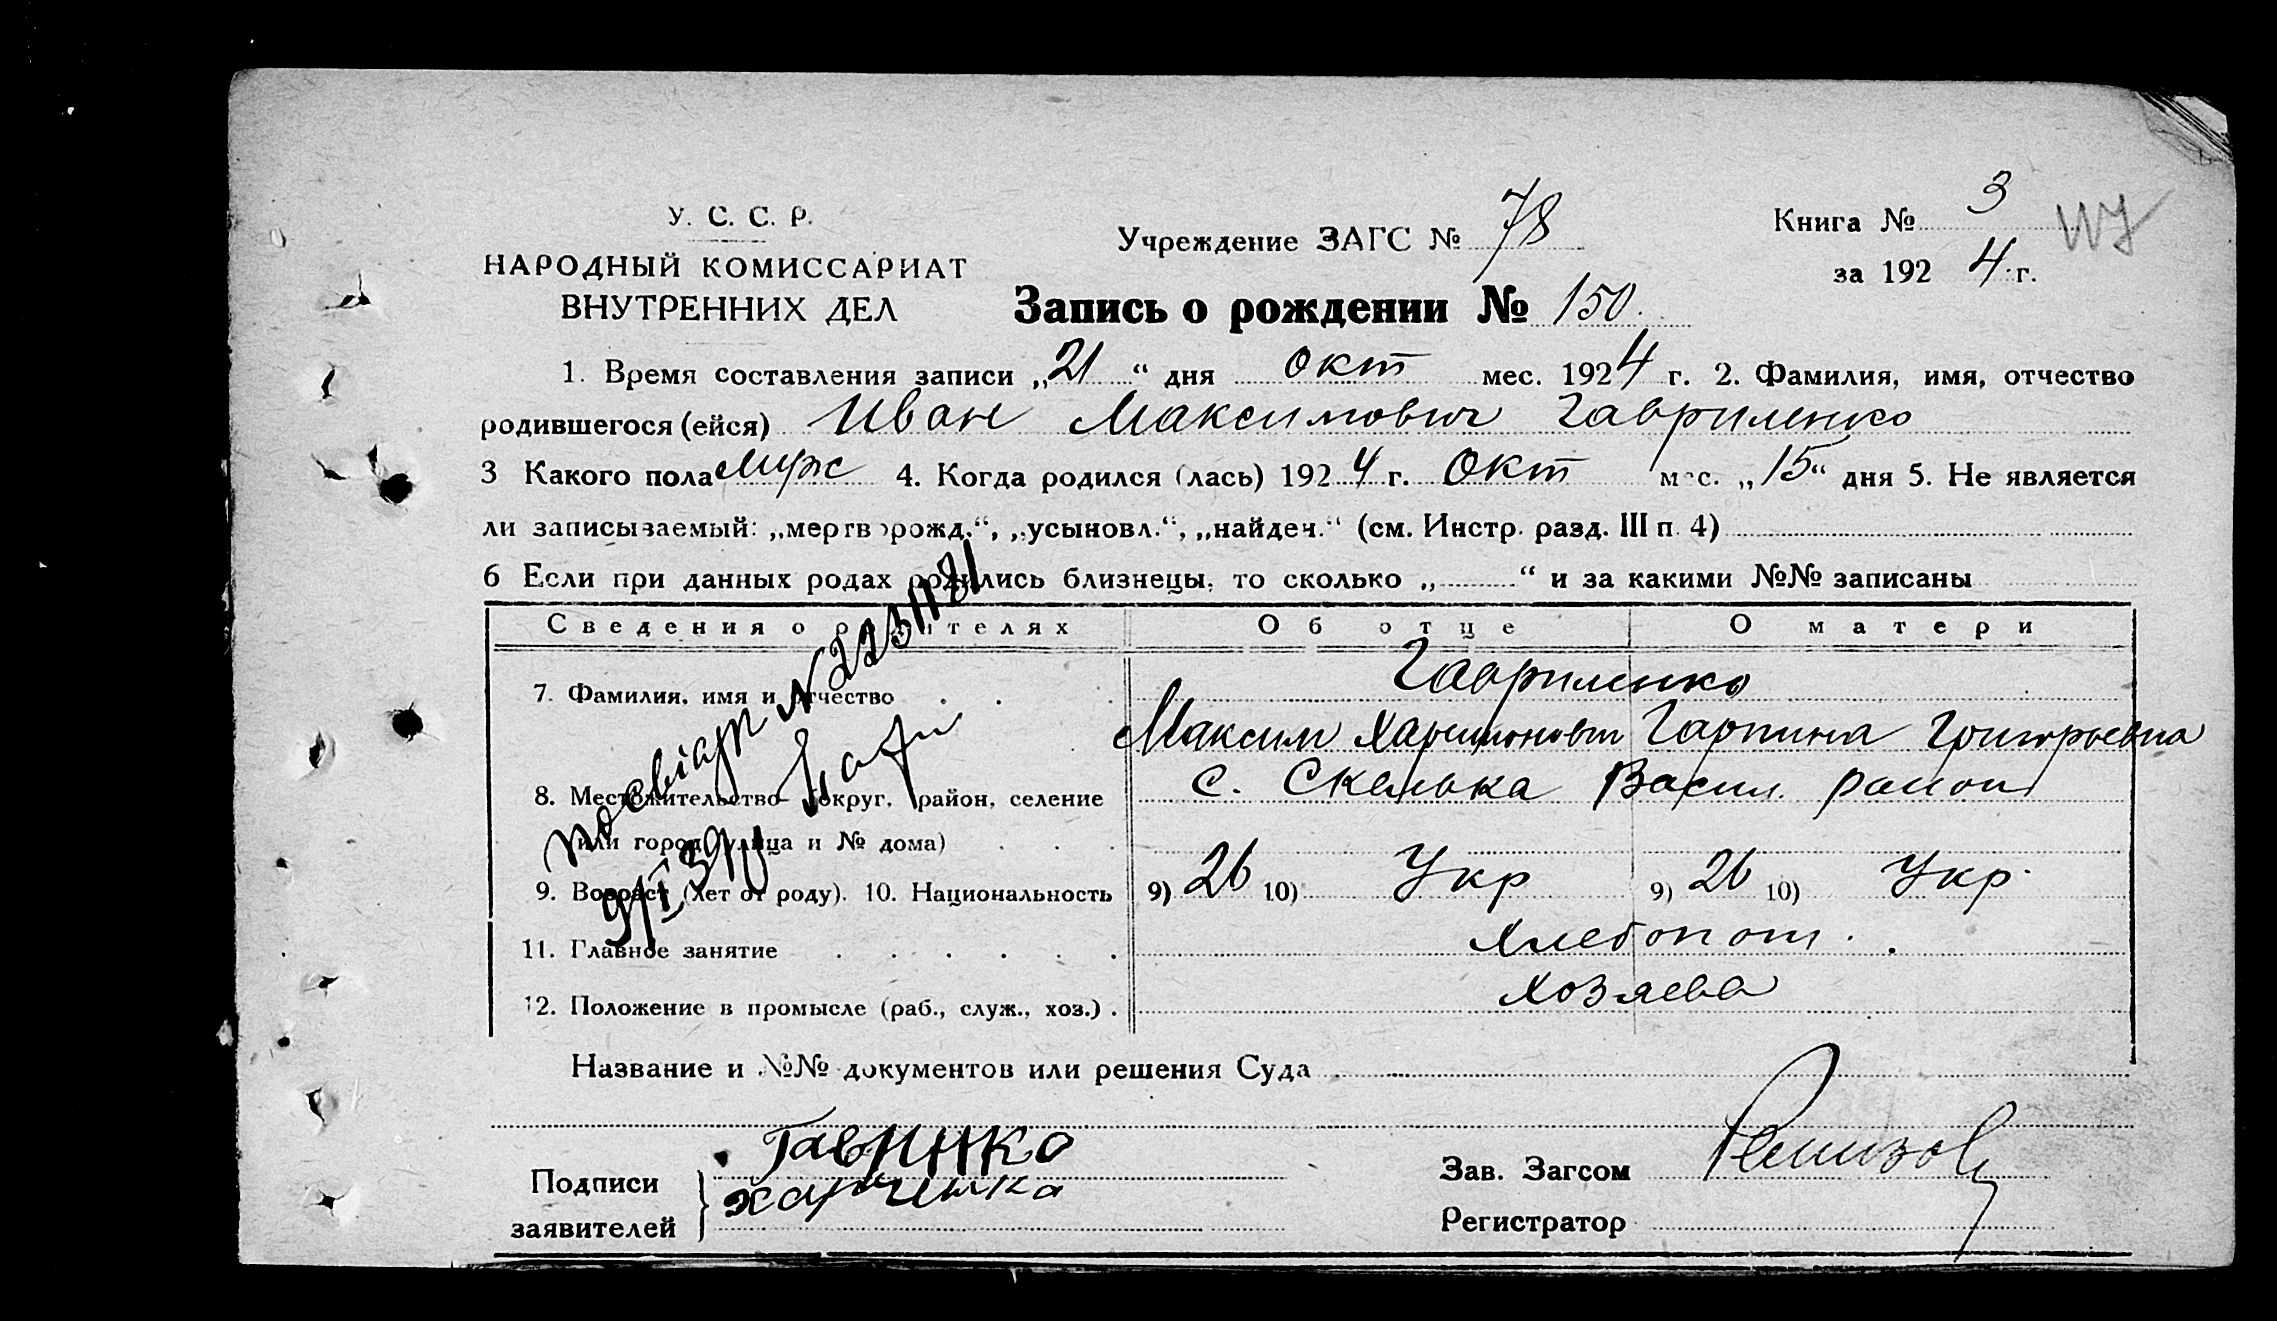 У. С. С. Р.
НАРОДНЫЙ КОМИССАРИАТ
ВНУТРЕННИХ ДЕЛ
Учреждение ЗАГС № 78
Книга № 3
за 1924 г.
Запись о рождении № 150.
1. Время составления записи „21“ дня окт мес. 1924 г. 2. Фамилия, имя, отчество
родившегося (ейся) Иван Максимович Гавриленко
3 Какого пола мирс 4. Когда родился (лась) 1924 г. Окт мес. „15“ дня 5. Не является
ли записываемый: „мертворожд.“, „усыновл.“, „найден.“ (см. Инстр. разд. III п. 4)
6 Если при данных родах родились близнецы, то сколько „ “ и за какими №№ записаны
Сведения о родителях Об отце О матери
7. Фамилия, имя и отчество Гавриленко
Максим Харитонович Гарпина Григорьевна
8. Местожительство (округ, район, селение с. Скелька Васил. район
или город, улица и № дома)
9. Возраст (лет от роду). 10. Национальность 9) 26 10) Укр 9) 26 10) Укр.
11. Главное занятие Хлебопаш.
12. Положение в промысле (раб., служ., хоз.) хозяева
N 2231181
9/I 39
Название и №№ документов или решения Суда
Подписи
заявителей
Гавринко
харченка
Зав. Загсом Ремизов
Регистратор